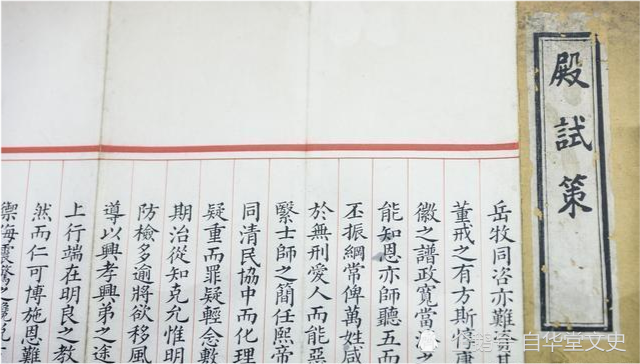 殿試策
岳牧同咨亦難
董戒之有方斯惇
徽之譜政寬當
能知恩亦師聽五而
丕振綱常俾萬姓咸
於無刑愛人而能惡
繄士師之簡任熙帝
同清民協中而化理
疑重而罪疑輕念數
期治從知克允惟明
防檢多逾將欲移風
導以興孝興弟之途
上行端在明良之教
然而仁可博施恩難
禦侮震驚之
自华堂文史